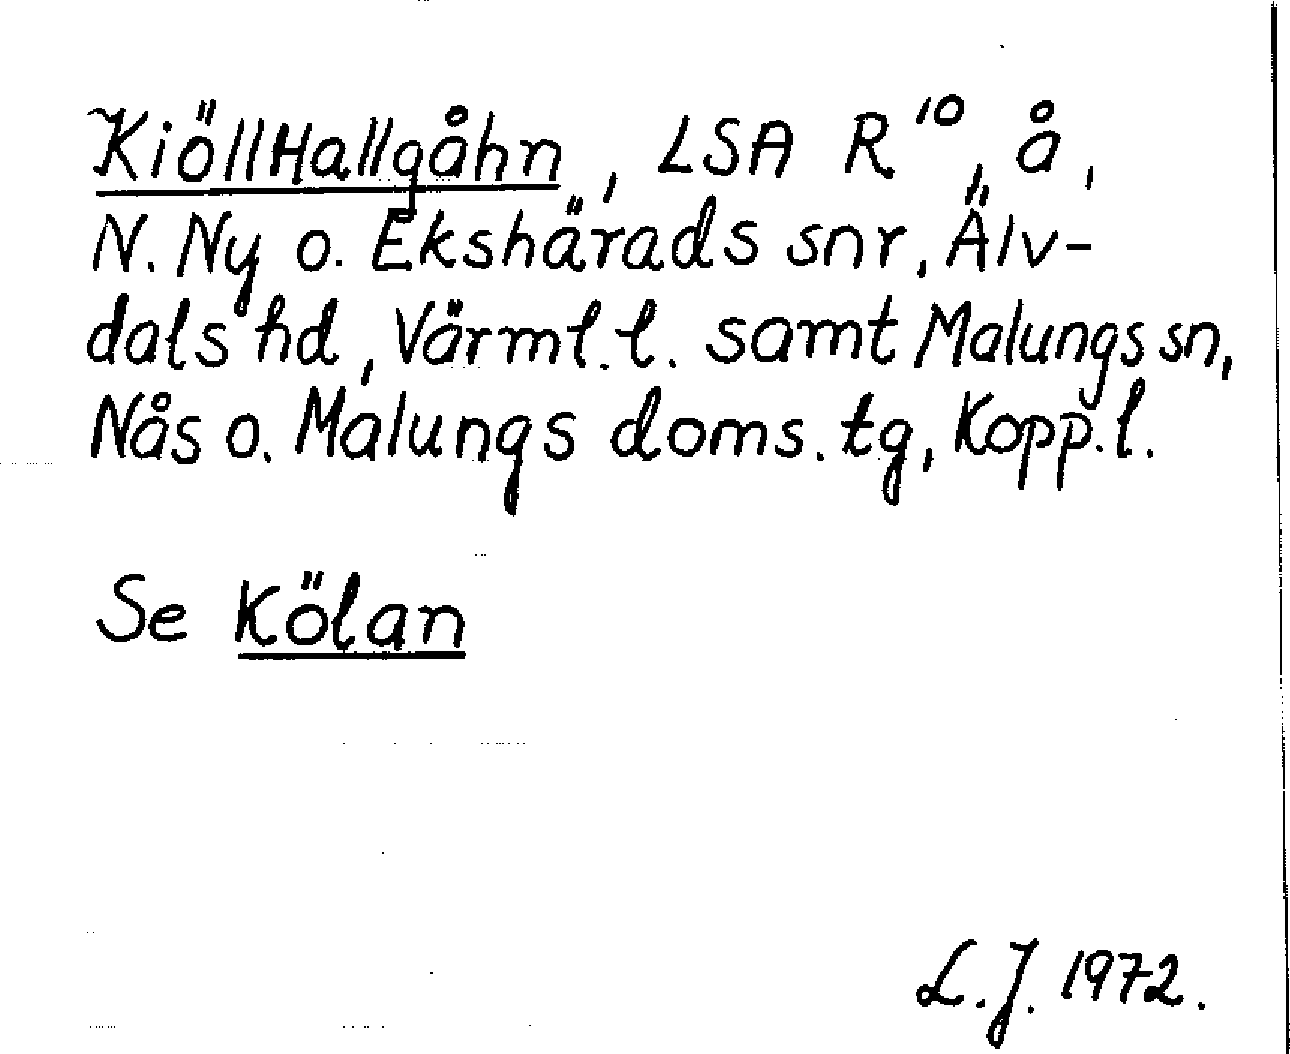 KiöllHallgåhn, LSA R¹⁰, å,
N. Ny o. Ekshärads snr, Älv-
dals hd, Värml. l. samt Malungs sn,
Nås o. Malungs doms. tg, Kopp. l.
Se Kölan
L.J. 1972.